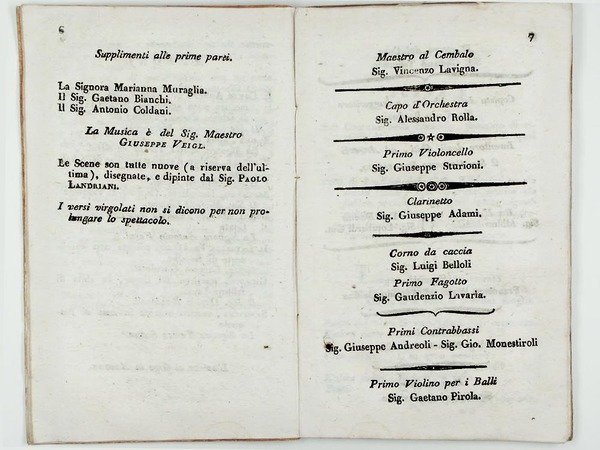 6
Supplimenti alle prime parti.
La Signora Marianna Muraglia.
Il Sig. Gaetano Bianchi.
Il Sig. Antonio Coldani.
La Musica è del Sig. Maestro
GIUSEPPE VEIGL.
Le Scene son tutte nuove (a riserva dell'ul-
tima), disegnate, e dipinte dal Sig. PAOLO
LANDRIANI.
I versi virgolati non si dicono per non pro-
lungare lo spettacolo.
7
Maestro al Cembalo
Sig. Vincenzo Lavigna.
Capo d'Orchestra
Sig. Alessandro Rolla.
Primo Violoncello
Sig. Giuseppe Sturioni.
Clarinetto
Sig. Giuseppe Adami.
Corno da caccia
Sig. Luigi Belloli
Primo Fagotto
Sig. Gaudenzio Lavaria.
Primi Contrabbassi
Sig. Giuseppe Andreoli - Sig. Gio. Monestiroli
Primo Violino per i Balli
Sig. Gaetano Pirola.